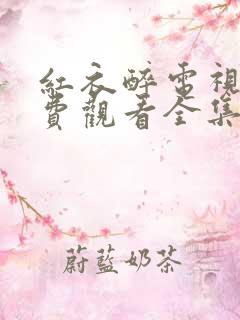 紅衣醉電視
費觀看全集
蔚藍奶茶